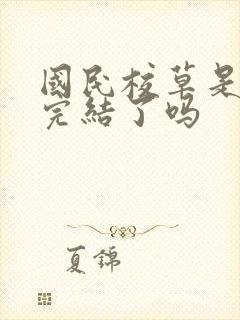 國民校草是
完結了吗
夏錦